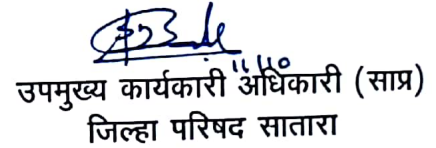 उपमुख्य कार्यकारी अधिकारी (साप्र)
जिल्हा परिषद सातारा